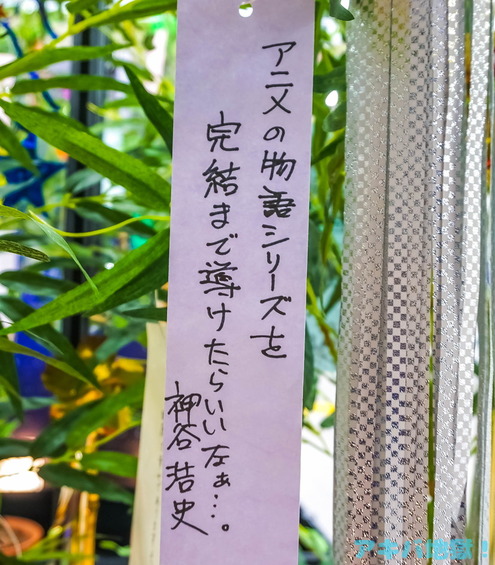 アニメの物語シリーズを
完結まで導けたらいいなぁ…。
神谷 浩史
アキバ地獄!